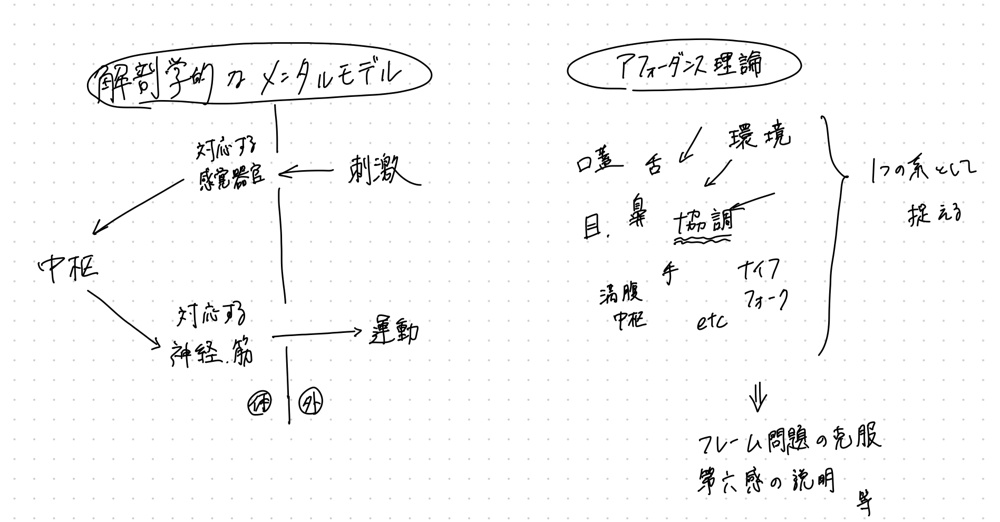 解剖学的なメンタルモデル
対応する
感覚器官
刺激
中枢
対応する
神経.筋
運動
体
外
アフォーダンス理論
環境
口蓋 舌
目. 鼻 協調
手 ナイフ
フォーク
満腹
中枢
etc
1つの系として
捉える
⇓
フレーム問題の克服
第六感の説明
等